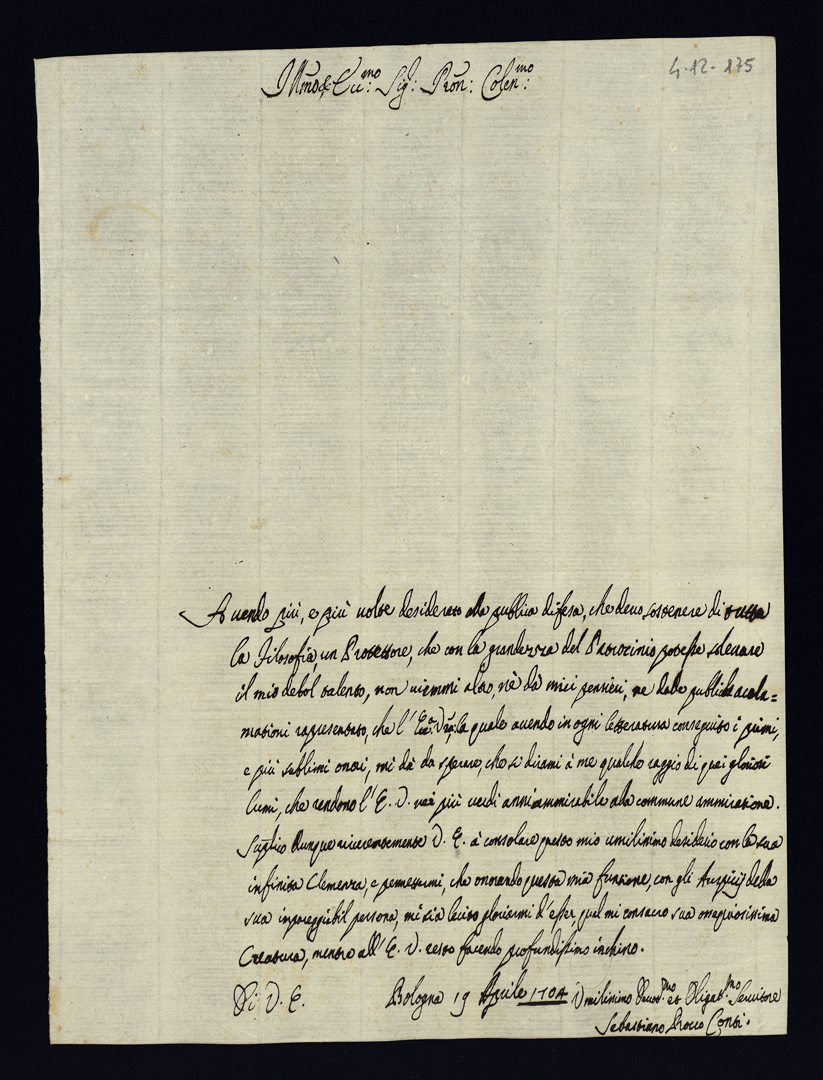 4-12-175
Illmo & Ecc:mo Sig: Pron: Colen:mo
Avendo più, e più volte desiderato alla publica difesa, che devo sostenere di tutta
la Filosofia, un Protettore, che con la grandezza del Patrocinio potesse solevare
il mio debol talento, non viemmi altro, nè dà miei pensieri, ne dale publiche acela=
mationi rapresentato, che l' Ecc:a V:ra la quale avendo in ogni letteratura conseguito i primi,
e più sublimi onori, mi dà da sperare, che si dirami à me qualche raggio di quei gloriosi
lumi, che rendono l' E. V. nei più verdi anni ammirabile alla commune ammiratione.
Suplico dunque riverentemente V. E. à consolare questo mio umilissimo desiderio con la sua
infinita Clemenza, e permettermi, che onorando questa mia funtione, con gli Auspicij della
sua impareggiabil persona, mi sia lecito gloriarmi d'esser, qual mi consacro sua ossequiosissima
Creatura, mentre all' E. V. resto facendo profundissimo inchino.
Di V. E.
Bologna 19 Aprile 1704 Vmilissimo Devot:mo et Obligat:mo Servitore
Sebastiano Rocco Conti.